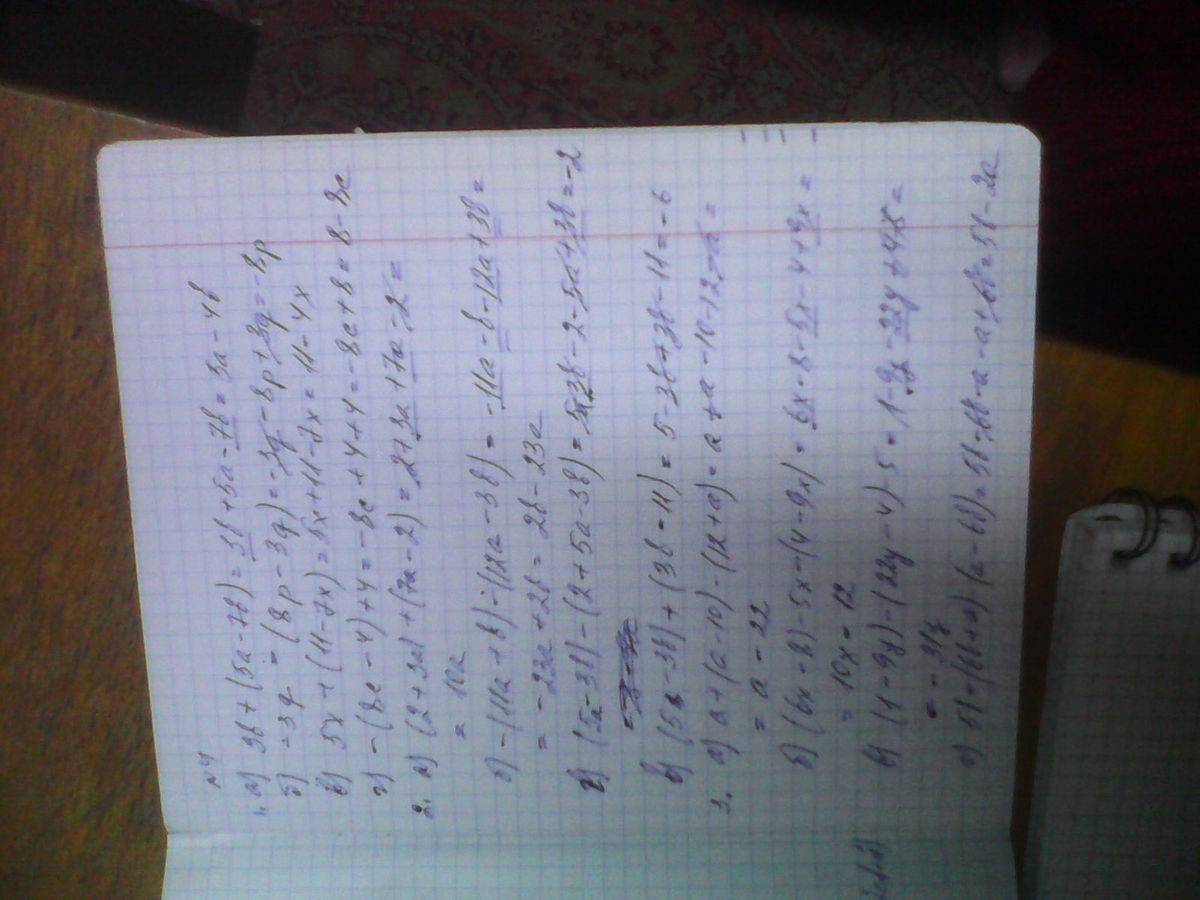 №4
1. а) 3b + (5a - 7b) = 3b + 5a - 7b = 5a - 4b
б) -3q - (8p - 3q) = -3q - 8p + 3q = -8p
в) 5x + (11 - 7x) = 5x + 11 - 7x = 11 - 4x
г) - (8c - 4) + 4 = -8c + 4 + 4 = -8c + 8 = 8 - 8c
2. а) (2 + 3a) + (7a - 2) = 2 + 3a + 7a - 2 =
= 10a
б) - (11a + 8) - (12a - 3b) = -11a - 8 - 12a + 3b =
= -23a + 2b = 2b - 23a
(5a - 3b) - (2 + 5a - 3b) = 5a - 3b - 2 - 5a + 3b = -2
в) (5 - 3b) + (3b - 11) = 5 - 3b + 3b - 11 = -6
3. а) a + (a - 10) - (12 + a) = a + a - 10 - 12 - a =
= a - 22
б) (6x - 8) - 5x - (4 - 9x) = 6x - 8 - 5x - 4 + 9x =
= 10x - 12
в) (1 - 9y) - (22y - 4) - 5 = 1 - 9y - 22y + 4 - 5 =
= - 31y
г) 5b - (6b + a) - (a - 6b) = 5b - 6b - a - a + 6b = 5b - 2a